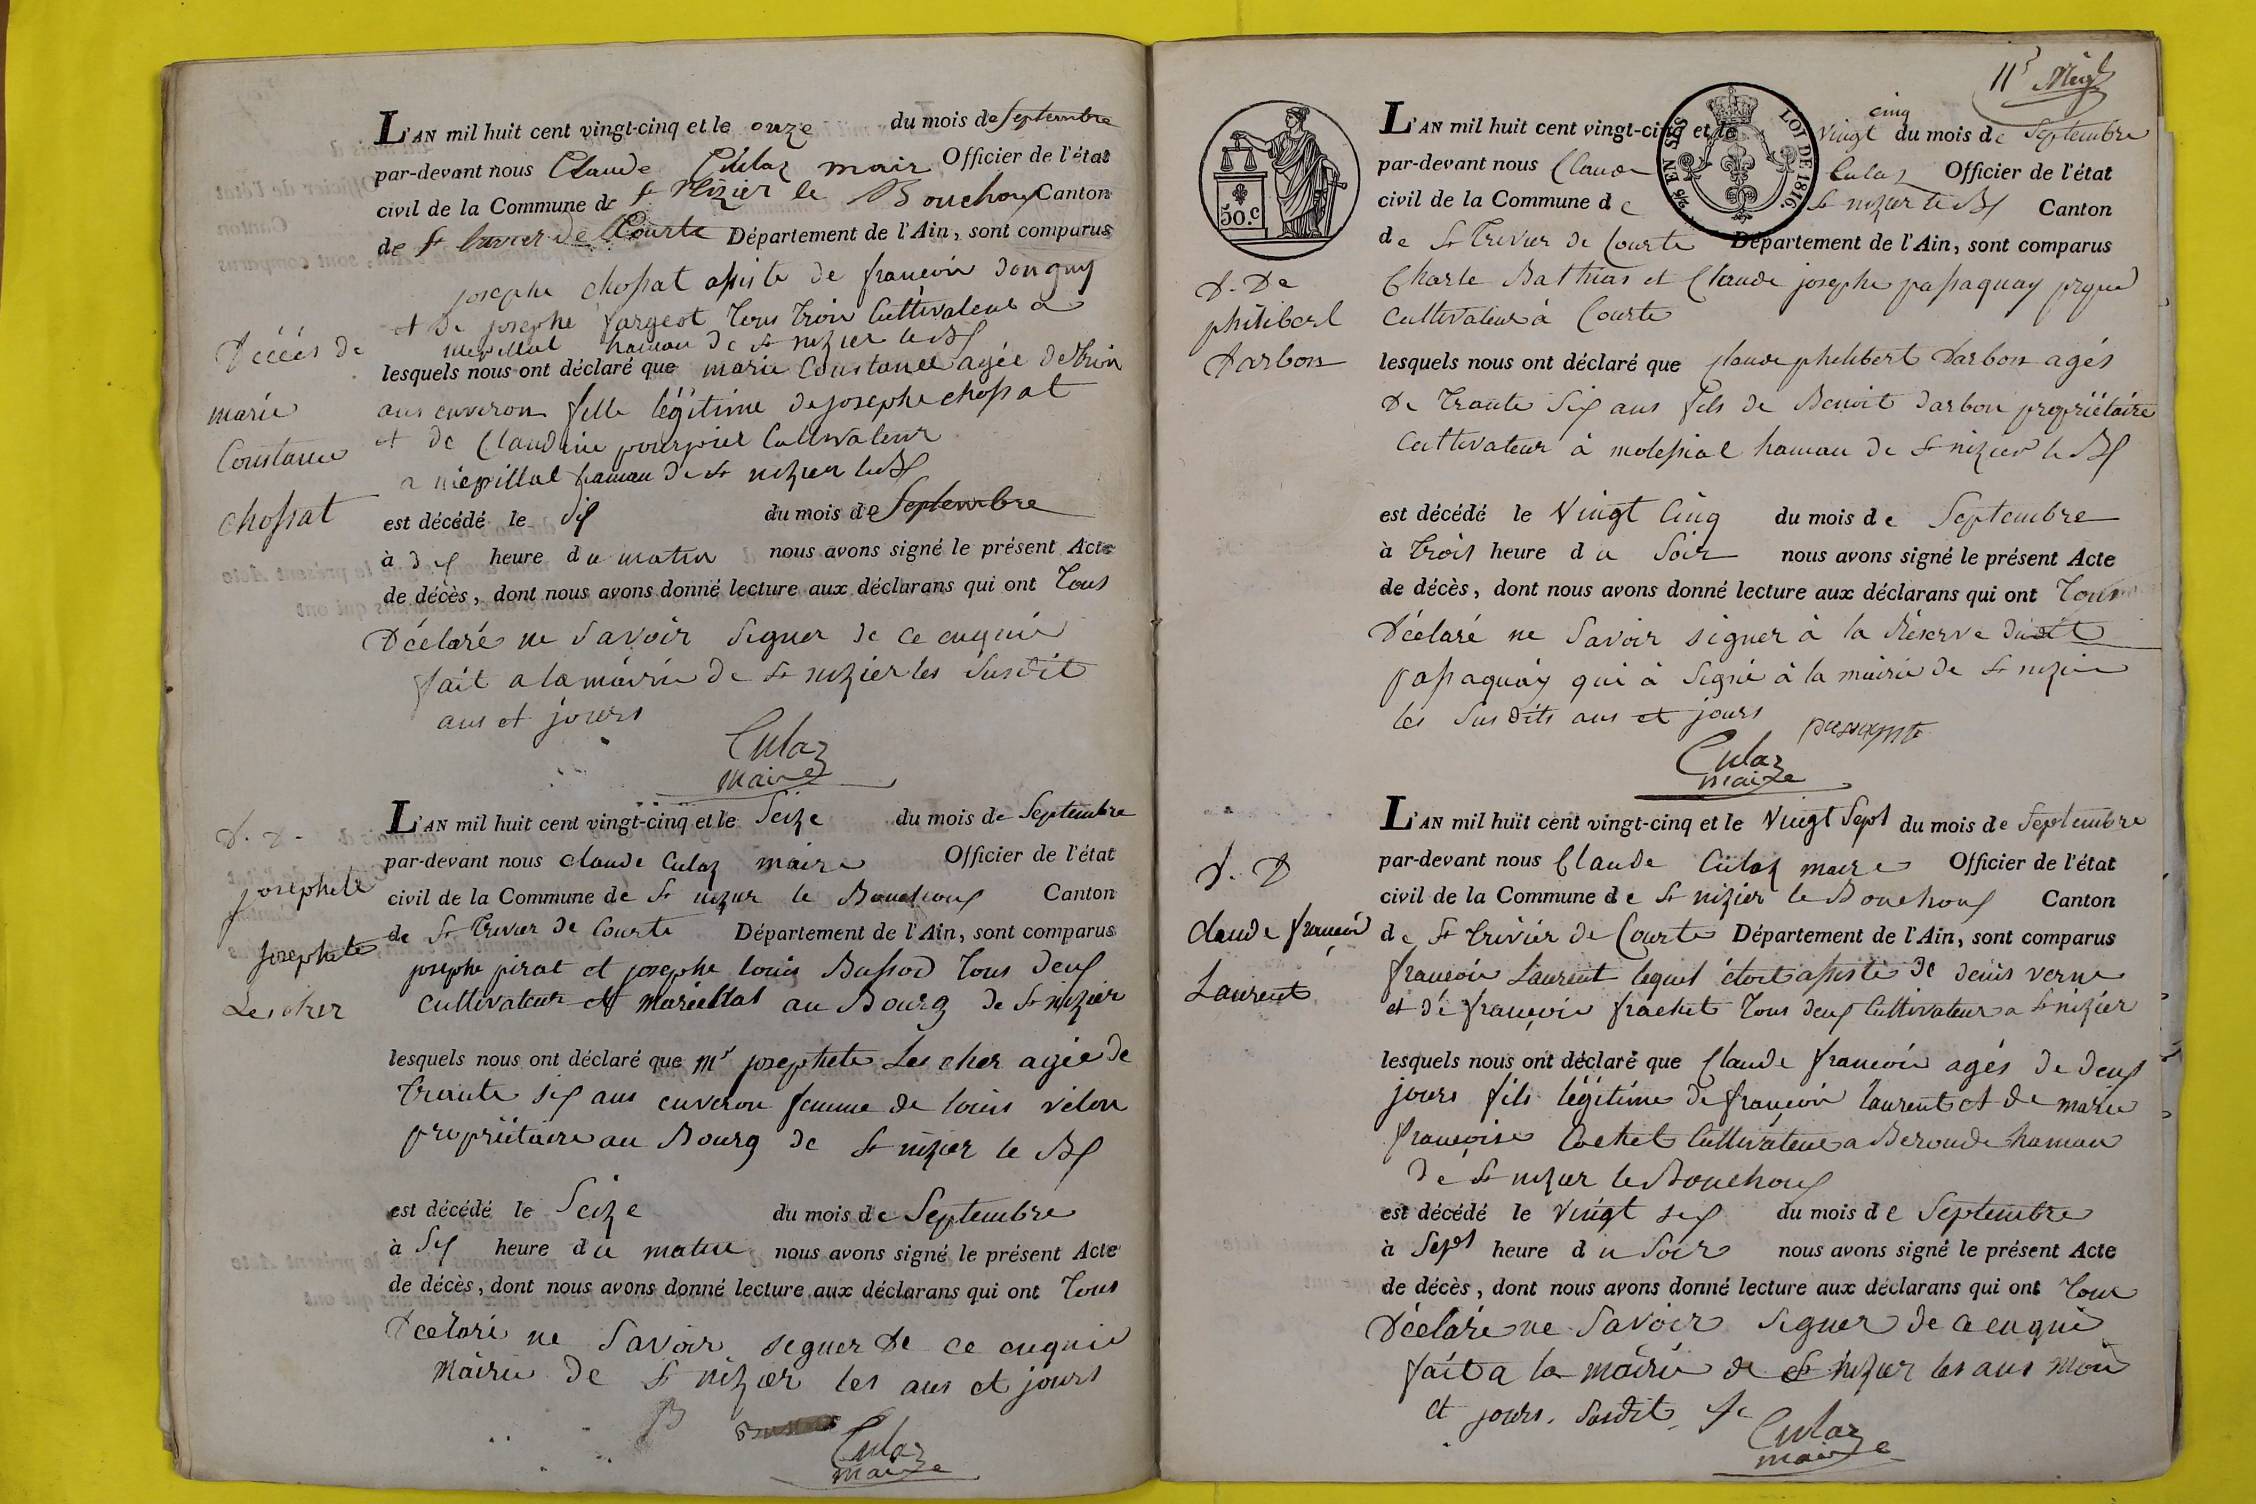 L'AN mil huit cent vingt-cinq et le onze du mois de Septembre
par-devant nous Claude Culaz mair Officier de l'état
civil de la Commune de St Nizier le Bouchoux Canton
de St trivier de Courte Département de l'Ain, sont comparus
josephe chossat assiste de francois donguy
et de josephe fargeot tous trois Cultivateur a
hamau de st nizier le Bx
Décés de
marie
Constance
chossat
lesquels nous ont déclaré que marie Constance agée de trois
ans environ fille légitime de josephe chossat
et de Claudine pourpriet Cultivateur
a mépillat hamau de st nizier le Bx
est décédé le dix du mois de Septembre
à dix heure du matin nous avons signé le présent Acte
de décès, dont nous avons donné lecture aux déclarans qui ont tous
Déclaré ne Savoir Signer de ce enquis
fait a la mairie de st nizier les Susdit
ans et jours
Culaz
maire
L'AN mil huit cent vingt-cinq et le Seize du mois de Septembre
par-devant nous claude Culaz maire Officier de l'état
civil de la Commune de St nizier le Bouchoux Canton
de St Trivier de Courte Département de l'Ain, sont comparus
josephe pirat et josephe louis Bassod tous deux
cultivateur et maréchal au Bourg de St nizier
D. D.
josephete
josephete
Lescher
lesquels nous ont déclaré que josephete Lescher agée de
trante six ans environ femme de louis velon
propriétaire au Bourg de st nizier le Bx
est décédé le Seize du mois de Septembre
à Six heure du matin nous avons signé le présent Acte
de décès, dont nous avons donné lecture aux déclarans qui ont tous
Déclaré ne Savoir signer de ce enquis
Mairie de St nizier les ans et jours
Culaz
maire
11e
50.c
5/10 EN SUS
LOI DE 1816.
L'AN mil huit cent vingt-cinq et le vingt cinq du mois de Septembre
par-devant nous Claude Culaz Officier de l'état
civil de la Commune de St nizier le Bx Canton
de St Trivier de Courte Département de l'Ain, sont comparus
Charle Bathias et Claude josephe passaquay
Cultivateur à Courte
D. De
philibert
Darbon
lesquels nous ont déclaré que Claude philibert Darbon agés
De trante Six ans fils de Benoit darbon propriétaire
Cultivateur à molessiat hamau de St nizier le Bx
est décédé le Vingt Cinq du mois de Septembre
à trois heure du Soir nous avons signé le présent Acte
de décès, dont nous avons donné lecture aux déclarans qui ont tous
Déclaré ne Savoir signer à la Réserve dudit
passaquay qui à Signé à la mairie de St nizier
les Susdits ans et jours
Culaz
maire
L'AN mil huit cent vingt-cinq et le Vingt Sept du mois de Septembre
par-devant nous Claude Culaz maire Officier de l'état
civil de la Commune de St nizier le Bouchoux Canton
de St trivier de Courte Département de l'Ain, sont comparus
francois Laurent lequel étoit assisté de denis verne
et dé francois frachet tous deux Cultivateur a St nizier
D. D
claude francois
Laurent
lesquels nous ont déclaré que Claude francois agés de deux
jours fils légitime de francois laurent et de marie
francoise Cochet Cultivateur a Beroude hamau
dé St nizier le Bouchoux
est décédé le Vingt six du mois de Septembre
à Sept heure du Soir nous avons signé le présent Acte
de décès, dont nous avons donné lecture aux déclarans qui ont tous
Déclaré ne Savoir Signer de ce enquis
fait a la mairie de St nizier les ans mois
et jours Susdit
Culaz
maire